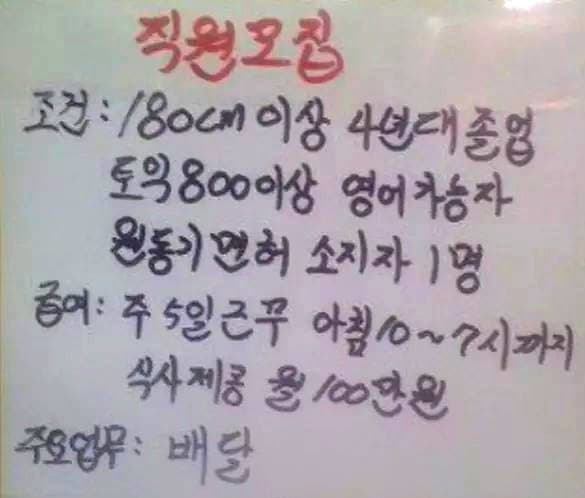 직원모집
조건: 180cm 이상 4년대졸업
토익800이상 영어가능자
원동기면허 소지자 1명
급여: 주 5일근무 아침10~7시까지
식사제공 월 100만원
주요업무: 배달